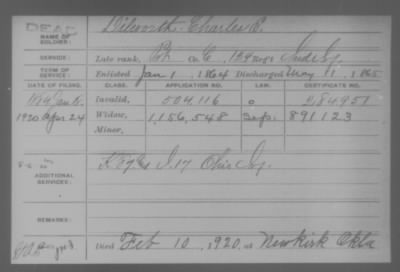 DEAD
NAME OF SOLDIER: Dilworth, Charles P.
SERVICE: Late rank, Co. 129 Reg't Ind Inf.
TERM OF SERVICE: Enlisted Jan 1, 1864 Discharged 1865
DATE OF FILING. CLASS. APPLICATION NO. LAW. CERTIFICATE NO.
Invalid, 504,116 284951
1920 Apr 24 Widow, 1,156,548 891123
Minor,
ADDITIONAL SERVICES: I. 17 Ohio Inf.
REMARKS:
Died Feb 10, 1920, at Newkirk Okla